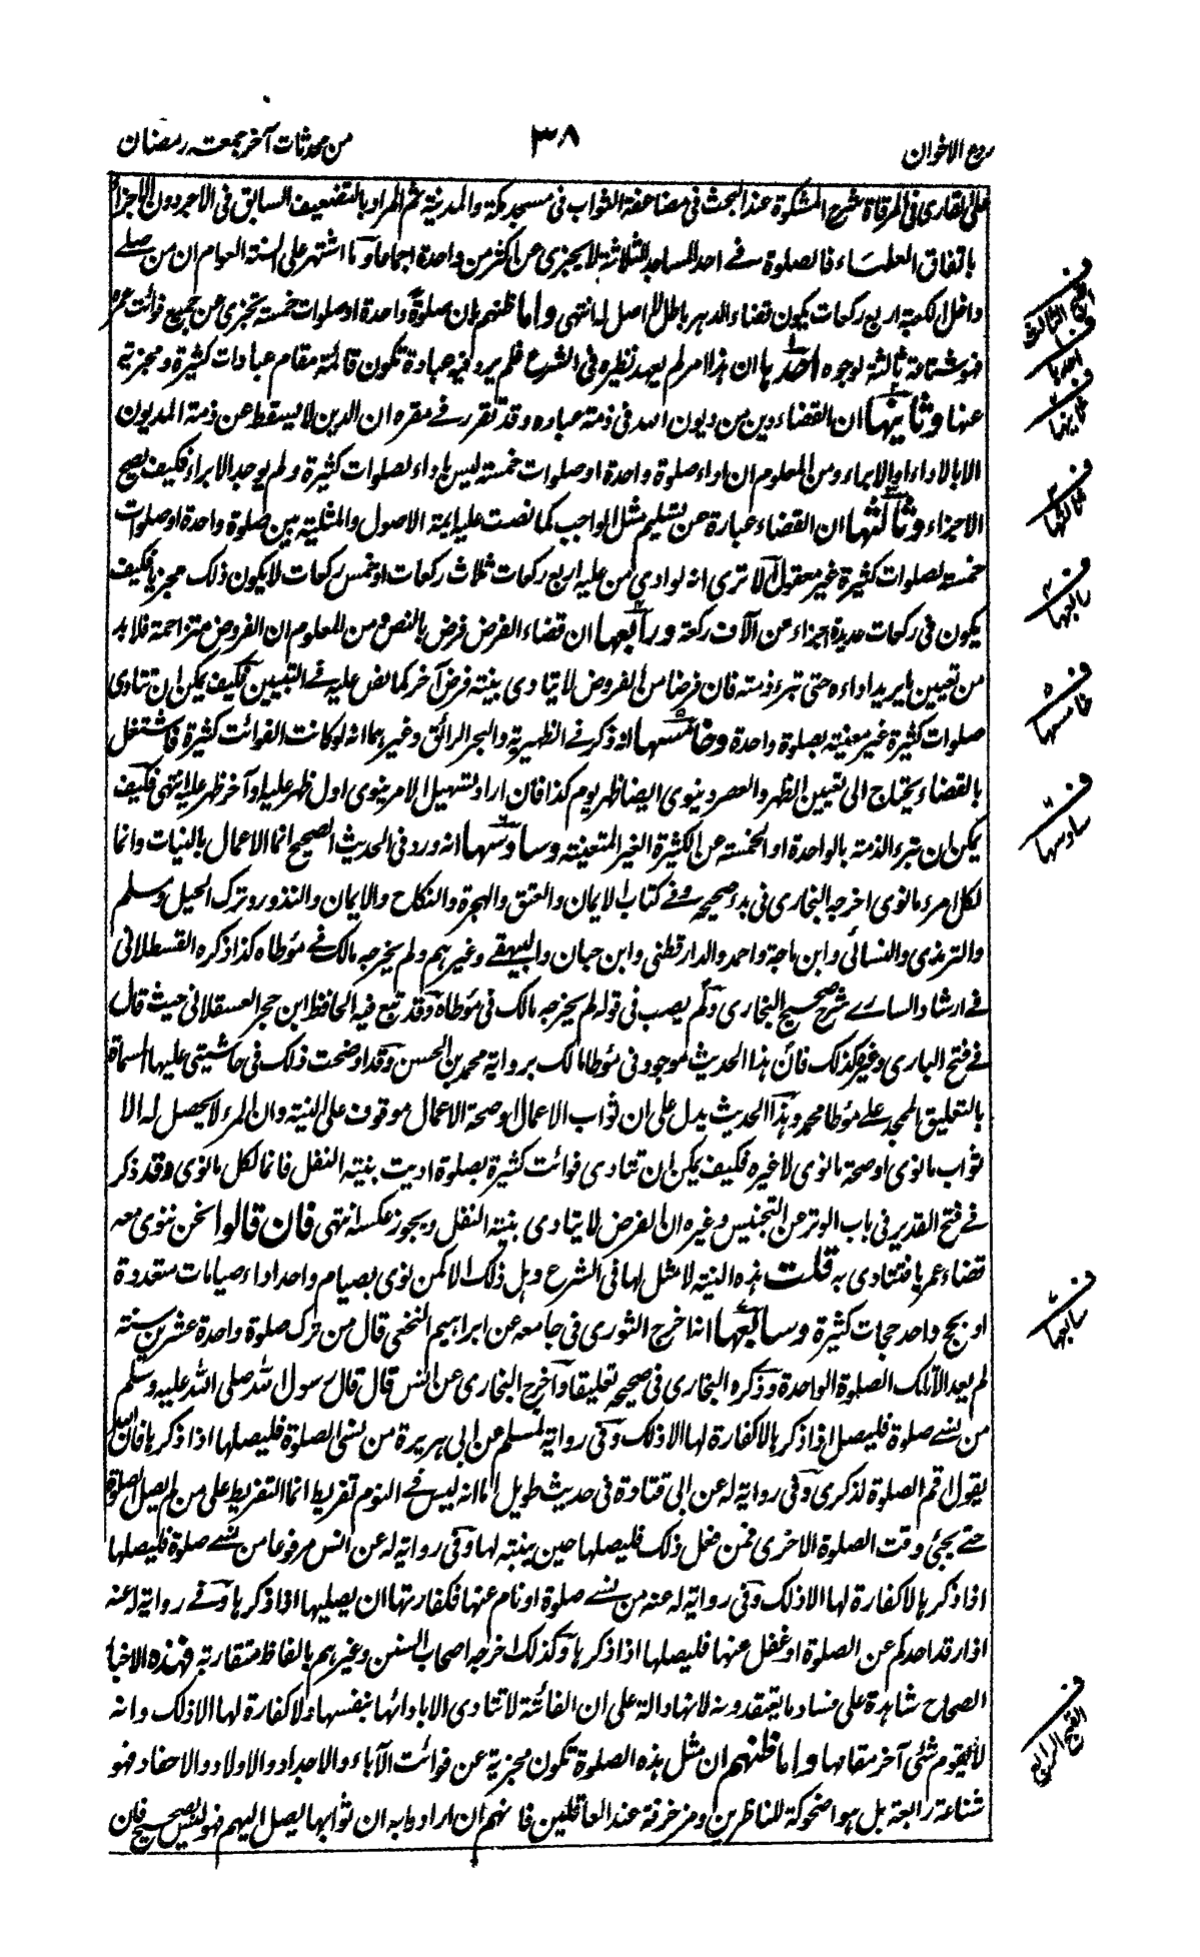 ردع الاخوان
٣٨
من محدثات آخر جمعة رمضان
على القارى فى المرقاة شرح المشكوة عند البحث فى مضاعفة الثواب فى مسجد مكة والمدينة ثم المراد بالتضعيف السابق فى الاجر دون الاجزاء
باتفاق العلماء فالصلوة فے احد المساجد الثلاثة لا يجزى عن اكثر من واحدة اجماعا وما اشتهر على السنة العوام ان من صلے
داخل الكعبة اربع ركعات يكون قضاء الدهر باطل لا اصل له انتهى واما ظنهم بان صلوة واحدة او صلوات خمسة تجزى عن جميع فوائت عمره
فهو شناعة ثالثة لوجوه احدها ان هذا امر لم يعهد نظيره فى الشرع فلم يرد فيه عبادة تكون قائمة مقام عبادات كثيرة ومجزية
عنها وثانيها ان القضاء دين من ديون الله فى ذمة عباده وقد تقرر فے مقره ان الدين لا يسقط عن ذمة المديون
الا بالاداء او الابراء ومن المعلوم ان اداء صلوة واحدة او صلوات خمسة ليس باداء لصلوات كثيرة ولم يوجد الابراء فكيف يصح
الاجزاء وثالثها ان القضاء عبارة عن تسليم مثل الواجب كما نصت عليه ايمة الاصول والمثلية بين صلوة واحدة او صلوات
خمسة لصلوات كثيرة غير معقول الا ترى انه لو ادى من عليه اربع ركعات ثلاث ركعات او خمس ركعات لا يكون ذلك مجزيا فكيف
يكون فى ركعات عديدة اجزاء عن آلاف ركعة ورابعها ان قضاء الفرض فرض بالنص ومن المعلوم ان الفروض متزاحمة فلا بد
من تعيين ما يريد اداءه حتى تبرء ذمته فان فرضا من الفروض لا يتادى بنية فرض آخر كما نص عليه فے التبيين فكيف يمكن ان تتادى
صلوات كثيرة غير معينة بصلوة واحدة وخامسها انه ذكر فے الظهيرية والبحر الرائق وغيرهما انه لو كانت الفوائت كثيرة فاشتغل
بالقضاء يحتاج الى تعيين الظهر والعصر وينوى ايضا ظهر يوم كذا فان اراد تسهيل الامر ينوى اول ظهر عليه او آخر ظهر عليه انتهى فكيف
يمكن ان تبرء الذمة بالواحدة او الخمسة عن الكثيرة الغير المتعينة وسادسها انه ورد فى الحديث الصحيح انما الاعمال بالنيات وانما
لكل امرء ما نوى اخرجه البخارى فى بدء صحيحه وفے كتاب الايمان والعتق والهجرة والنكاح والايمان والنذور وترك الحيل ومسلم
والترمذى والنسائى وابن ماجة واحمد والدارقطنى وابن حبان والبيهقے وغيرهم ولم يخرجه مالك فے مؤطاه كذا ذكره القسطلانى
فے ارشاد السارے شرح صحيح البخارى ولم يصب فى قوله لم يخرجه مالك فى مؤطاه وقد تبع فيه الحافظ ابن حجر العسقلانى حيث قال
فے فتح البارى وغيره كذلك فان هذا الحديث موجود فى مؤطا مالك برواية محمد بن الحسن وقد اوضحت ذلك فى حاشيتى عليها المسماة
بالتعليق الممجد علے مؤطا محمد وهذا الحديث يدل على ان ثواب الاعمال او صحة الاعمال موقوف على النية وان المرء لا يحصل له الا
ثواب ما نوى او صحة ما نوى لا غيره فكيف يمكن ان تتادى فوائت كثيرة بصلوة اديت بنية النفل فانما لكل ما نوى وقد ذكر
فے فتح القدير فى باب الوتر عن التجنيس وغيره ان الفرض لا يتادى بنية النفل ويجوز عكسه انتهى فان قالوا نحن ننوى معه
قضاء عمريا فتتادى به قلت هذه النية لا مثل لها فى الشرع وهل ذلك الا كمن نوى بصيام واحد اداء صيامات متعددة
او بحج واحد حجات كثيرة وسابعها انه اخرج الثورى فى جامعه عن ابراهيم النخعى قال من ترك صلوة واحدة عشرين سنة
لم يعد الا تلك الصلوة الواحدة وذكره البخارى فى صحيحه تعليقا وآخرج البخارى عن انس قال قال رسول الله صلى الله عليه وسلم
من نسے صلوة فليصل اذا ذكرها لا كفارة لها الا ذلك وفى رواية لمسلم عن ابى هريرة من نسى الصلوة فليصلها اذا ذكرها فان الله
يقول اقم الصلوة لذكرى وفى رواية له عن ابى قتادة فى حديث طويل اما انه ليس فے النوم تفريط انما التفريط على من لم يصل الصلوة
حتے يجئ وقت الصلوة الاخرى فمن فعل ذلك فليصلها حين ينتبه لها وفى رواية له عن انس مرفوعا من نسے صلوة فليصلها
اذا ذكرها لا كفارة لها الا ذلك وفى رواية له عنه من نسے صلوة او نام عنها فكفارتها ان يصليها اذا ذكرها وفے رواية له عنه
اذا رقد احدكم عن الصلوة او غفل عنها فليصلها اذا ذكرها وكذلك اخرجه اصحاب السنن وغيرهم بالفاظ متقاربة فهذه الاخبار
الصحاح شاهدة على فساد ما يعتقدونه لانها دالة على ان الفائتة لا تتادى الا بادائها بنفسها ولا كفارة لها الا ذلك وانه
لا يقوم شئى آخر مقامها واما ظنهم ان مثل هذه الصلوة تكون مجزية عن فوائت الآباء والاجداد والاولاد والاحفاد فهو
شناعة رابعة بل هو اضحوكة للناظرين ومزخرفة عند العاقلين فانهم ان ارادوا به ان ثوابها يصل اليهم فهو ليس بصحيح فان
القبح الثالث
احدها
ثانيها
ثالثها
رابعها
خامسها
سادسها
سابعها
القبح الرابع